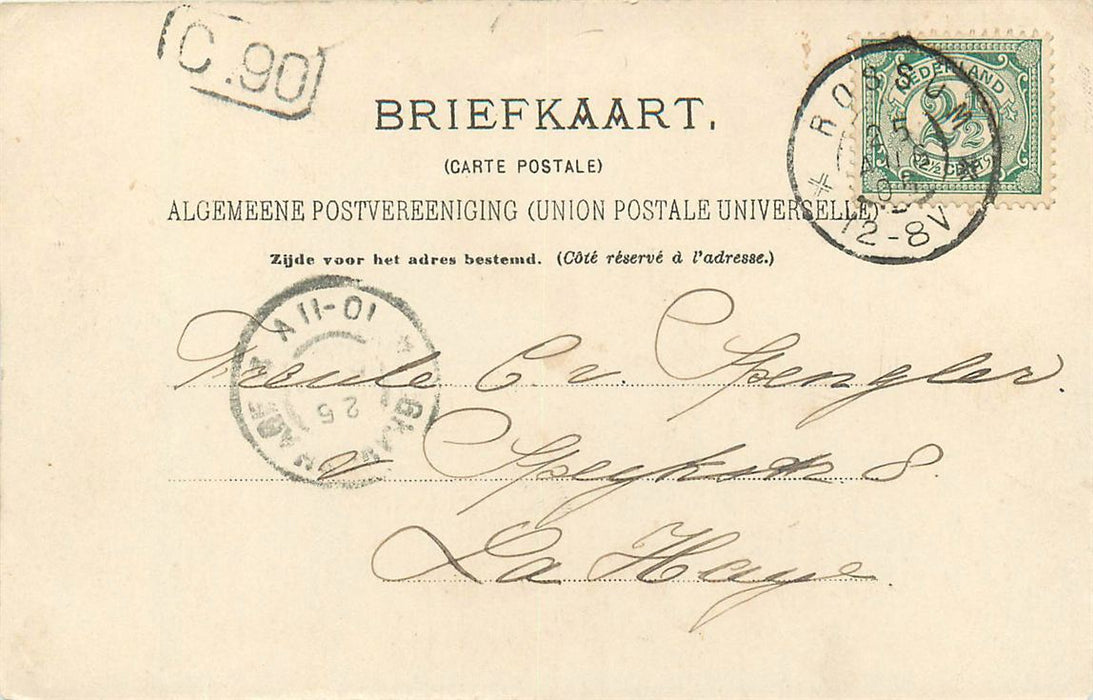 C.90
BRIEFKAART.
(CARTE POSTALE)
ALGEMEENE POSTVEREENIGING (UNION POSTALE UNIVERSELLE)
Zijde voor het adres bestemd. (Côté réservé à l'adresse.)
NEDERLAND
2½
2½ CENT
ROSSUM
25
AUG
12-8V
10-11V
25
Freule C. v. Spengler.
v Speykstr 8.
La Haye.